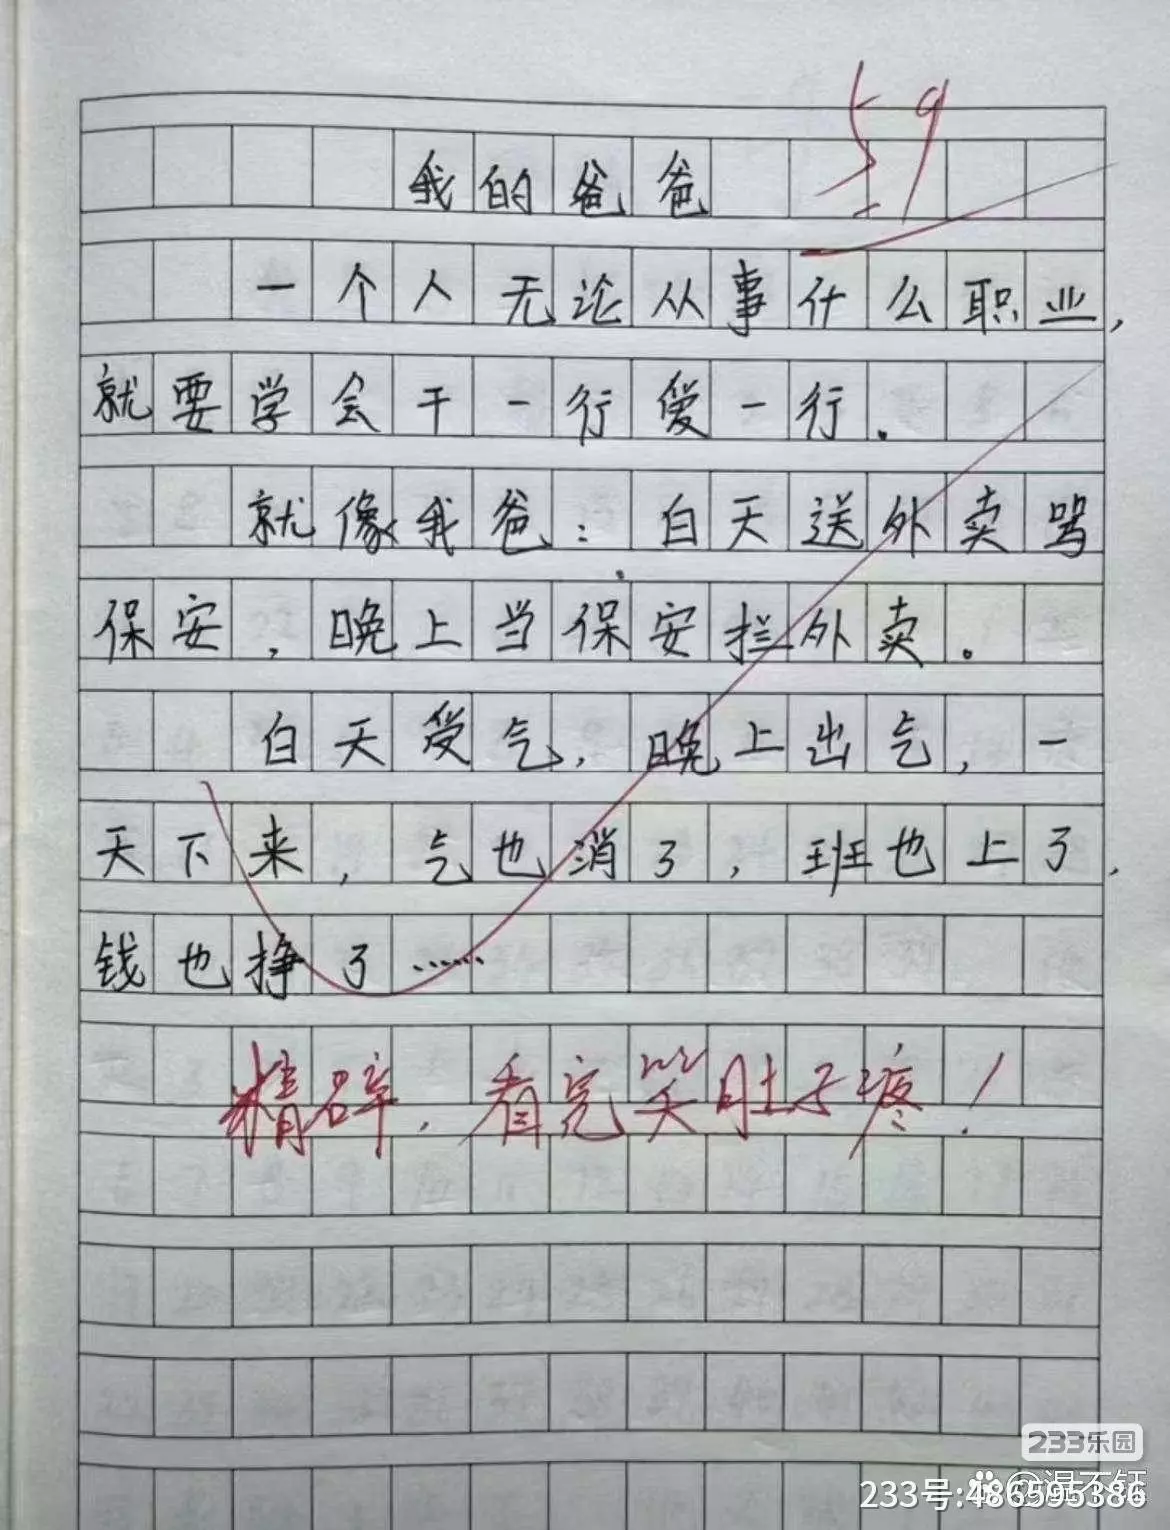 59
我的爸爸
一个人无论从事什么职业,
就要学会干一行爱一行.
就像我爸:白天送外卖骂
保安,晚上当保安拦外卖。
白天受气,晚上出气,一
天下来,气也消了,班也上了,
钱也挣了……
精辟,看完笑肚子疼!
233乐园
233号:486595386